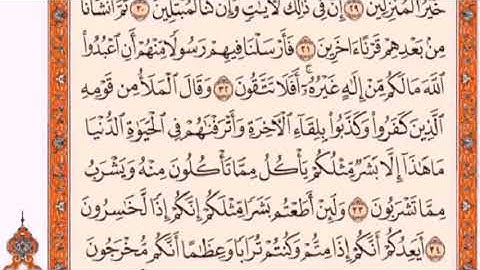 خَيْرُ ٱلْمُنزِلِينَ ٢٩ إِنَّ فِى ذَٰلِكَ لَـَٔايَـٰتٍ وَإِن كُنَّا لَمُبْتَلِينَ ٣٠ ثُمَّ أَنشَأْنَا
مِنۢ بَعْدِهِمْ قَرْنًا ءَاخَرِينَ ٣١ فَأَرْسَلْنَا فِيهِمْ رَسُولًا مِّنْهُمْ أَنِ ٱعْبُدُوا۟
ٱللَّهَ مَا لَكُم مِّنْ إِلَـٰهٍ غَيْرُهُۥٓ ۖ أَفَلَا تَتَّقُونَ ٣٢ وَقَالَ ٱلْمَلَأُ مِن قَوْمِهِ
ٱلَّذِينَ كَفَرُوا۟ وَكَذَّبُوا۟ بِلِقَآءِ ٱلْـَٔاخِرَةِ وَأَتْرَفْنَـٰهُمْ فِى ٱلْحَيَوٰةِ ٱلدُّنْيَا
مَا هَـٰذَآ إِلَّا بَشَرٌ مِّثْلُكُمْ يَأْكُلُ مِمَّا تَأْكُلُونَ مِنْهُ وَيَشْرَبُ
مِمَّا تَشْرَبُونَ ٣٣ وَلَئِنْ أَطَعْتُم بَشَرًا مِّثْلَكُمْ إِنَّكُمْ إِذًا لَّخَـٰسِرُونَ
٣٤ أَيَعِدُكُمْ أَنَّكُمْ إِذَا مِتُّمْ وَكُنتُمْ تُرَابًا وَعِظَـٰمًا أَنَّكُم مُّخْرَجُونَ